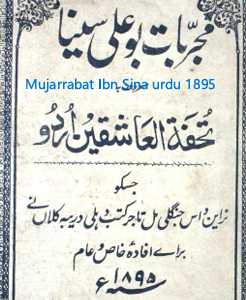 مجربات بوعلی سینا
Mujarrabat Ibn Sina urdu 1895
تحفة العاشقین اُردو
جسکو
نراین داس جنگلی مل تاجر کتب دہلی دریبہ کلاں نے
براے افادۂ خاص و عام
۱۸۹۵ء